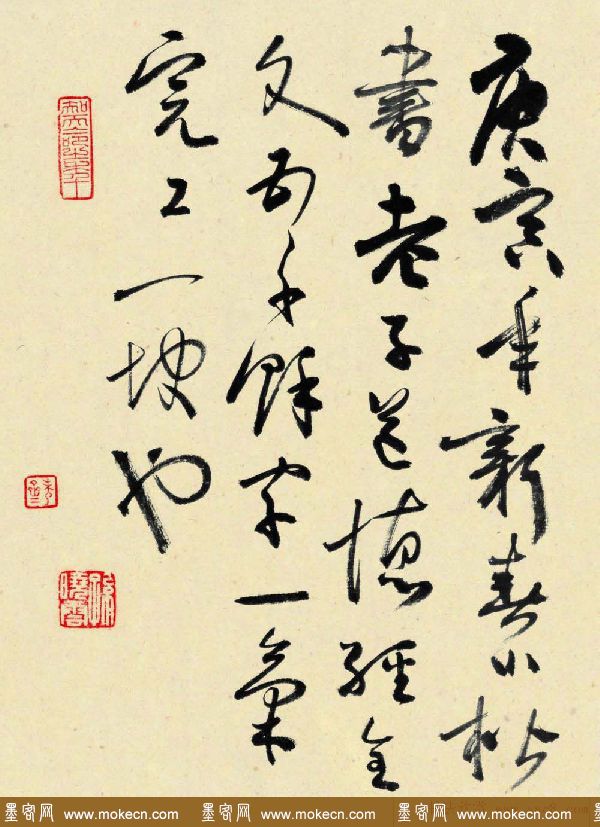 庚寅年新春小楷
書老子道德經全
文五千餘字一氣
完工一快也
孫曉雲
墨客网 www.mokecn.com 墨客网 www.mokecn.com 墨客网 www.mokecn.com